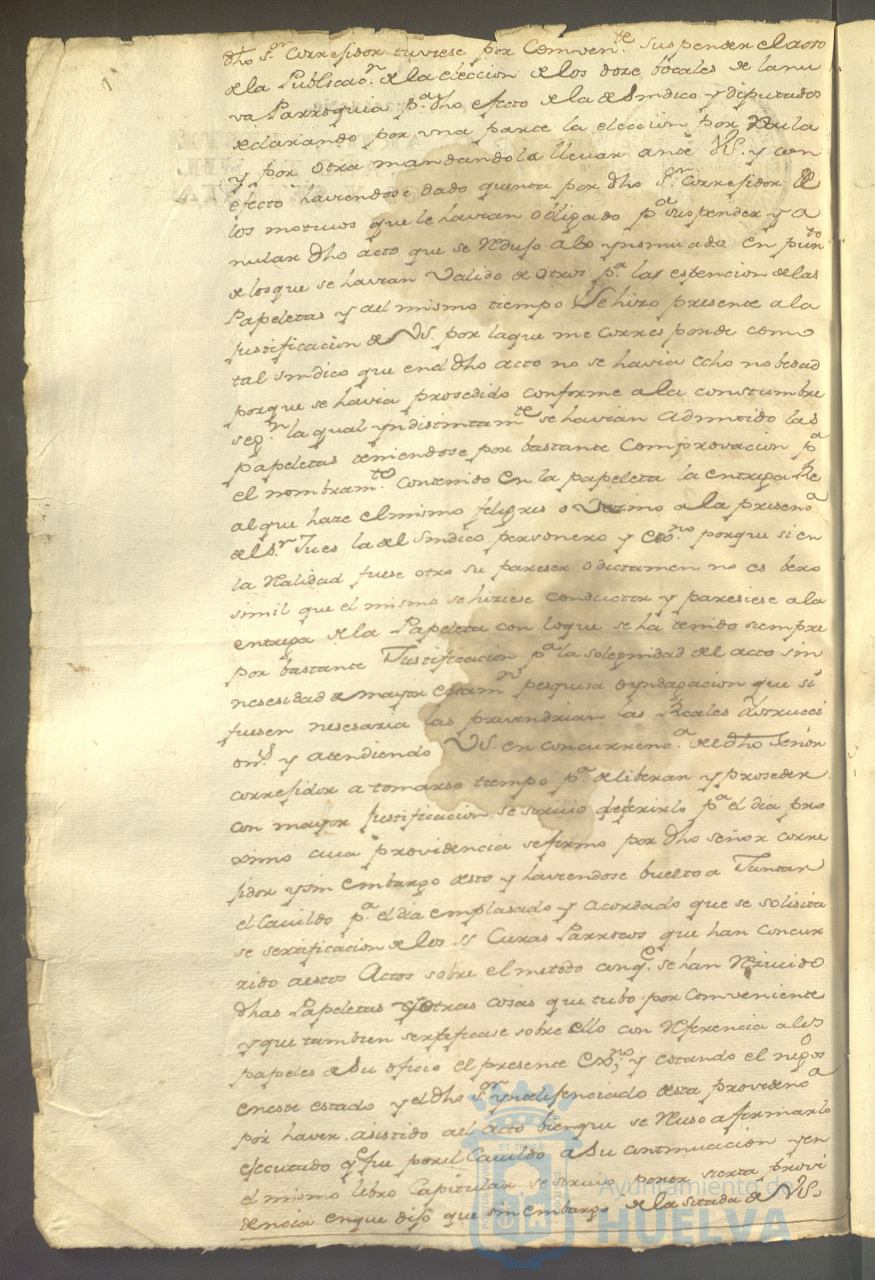 dho S.or Corresidor tuviese por Comven.te suspender el acto
de la Publicao.n de la eleccion de los doze bocales de la nu
va Parroquia p.a dho efecto de la de Sindico y diputados
declarando por una parte la eleccion por Nula
y por otra mandandola llevar ante VS. y con
efecto haviendose dado quenta por dho S.or Corresidor de
los motivos que le havian obligado p.a suspender y a
nular dho acto que se Reduso
de los que se havian Valido de otros p.a las estencion de las
Papeletas y al mismo tiempo Se hizo presente a la
Justificacion de VS. por la que me corresponde como
tal sindico que en el dho acto no se havia echo nobedad
porque se havia prosedido conforme a la constumbre
seg.n la qual yndistintam.te se havian admitido las
papeletas teniendose por bastante Comprovacion p.a
el nombram.to Contenido en la papeleta la entrega de
al que haze el mismo feligres o Vezino a la presen.a
del S.r Jues la del Sindico personero y Ess.no porque si en
la Realidad fuese otro su pareser o dictamen no es bero
simil que el mismo se hiziese conductor y paresiese a la
entrega de la Papeleta con lo que se ha tenido siempre
por bastante Justificacion p.a la solegnidad del acto sin
nesesidad de mayor Exsam.n pesquisa o yndagacion que si
fuesen nesesaria las prevendrian las Reales Ynstrucci
on.s y atendiendo VS. en concurren.a de dho Señor
corresidor a tomarse tiempo p.a deliberar y proseder
con mayor Justificacion se sirvio deferirlo p.a el dia pro
ximo cuia providencia se firmo por dho señor corre
sidor y sin embargo desto y haviendose buelto a Juntar
el Cavildo p.a el dia emplasado y acordado que se solisita
se sertificacion de los SS Curas Parrocos que han concur
rido a estos Actos sobre el metodo conq.e se han Resivido
dhas Papeletas y otras cosas que tubo por Comveniente
y que tambien sertificase sobre ello con Referencia a los
papeles de su oficio el presente Ess.no y estando el negosio
en este estado y el dho S.or yntelisenciado desta providen.a
por haver asistido al acto bien que se Reuso a firmarlo
ejecutado q.e fue por el Cavildo a su continuacion y en
el mismo libro Capitular se sirvio poner sierta provi
dencia en que dijo que sin embargo de la sitada de VS.
Ayuntamiento de
HUELVA